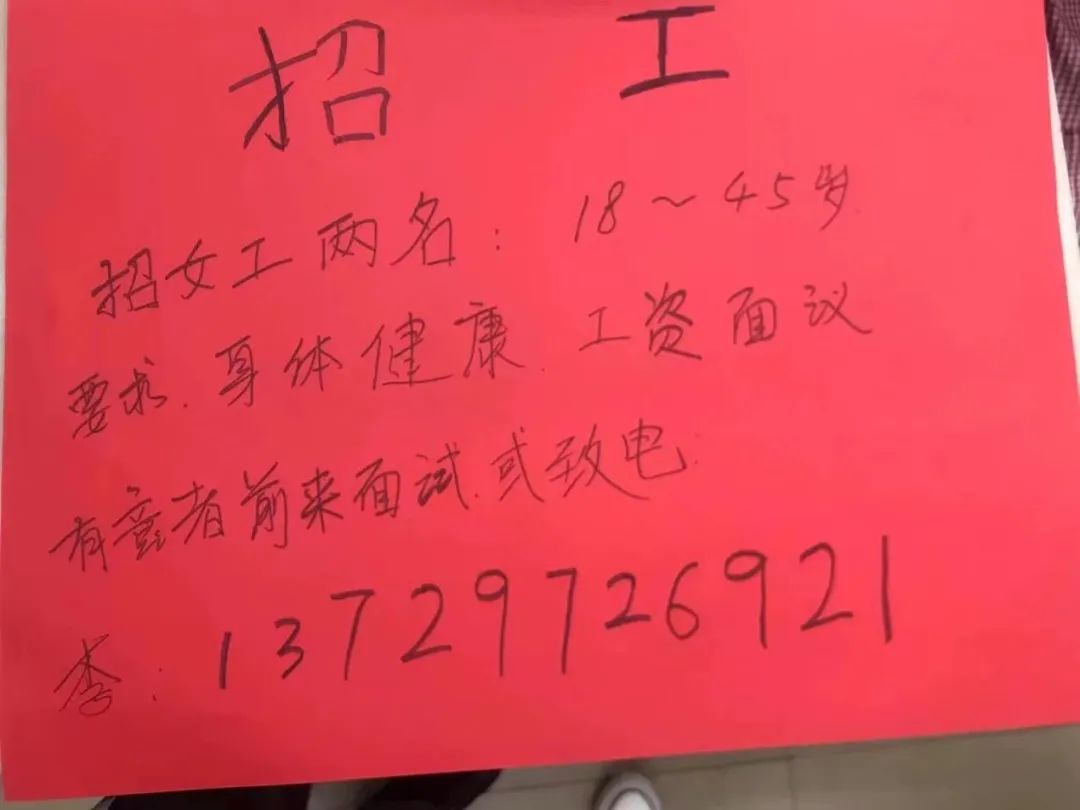 招工
招女工两名：18～45岁.
要求.身体健康.工资面议
有意者前来面试.或致电：
李：13729726921